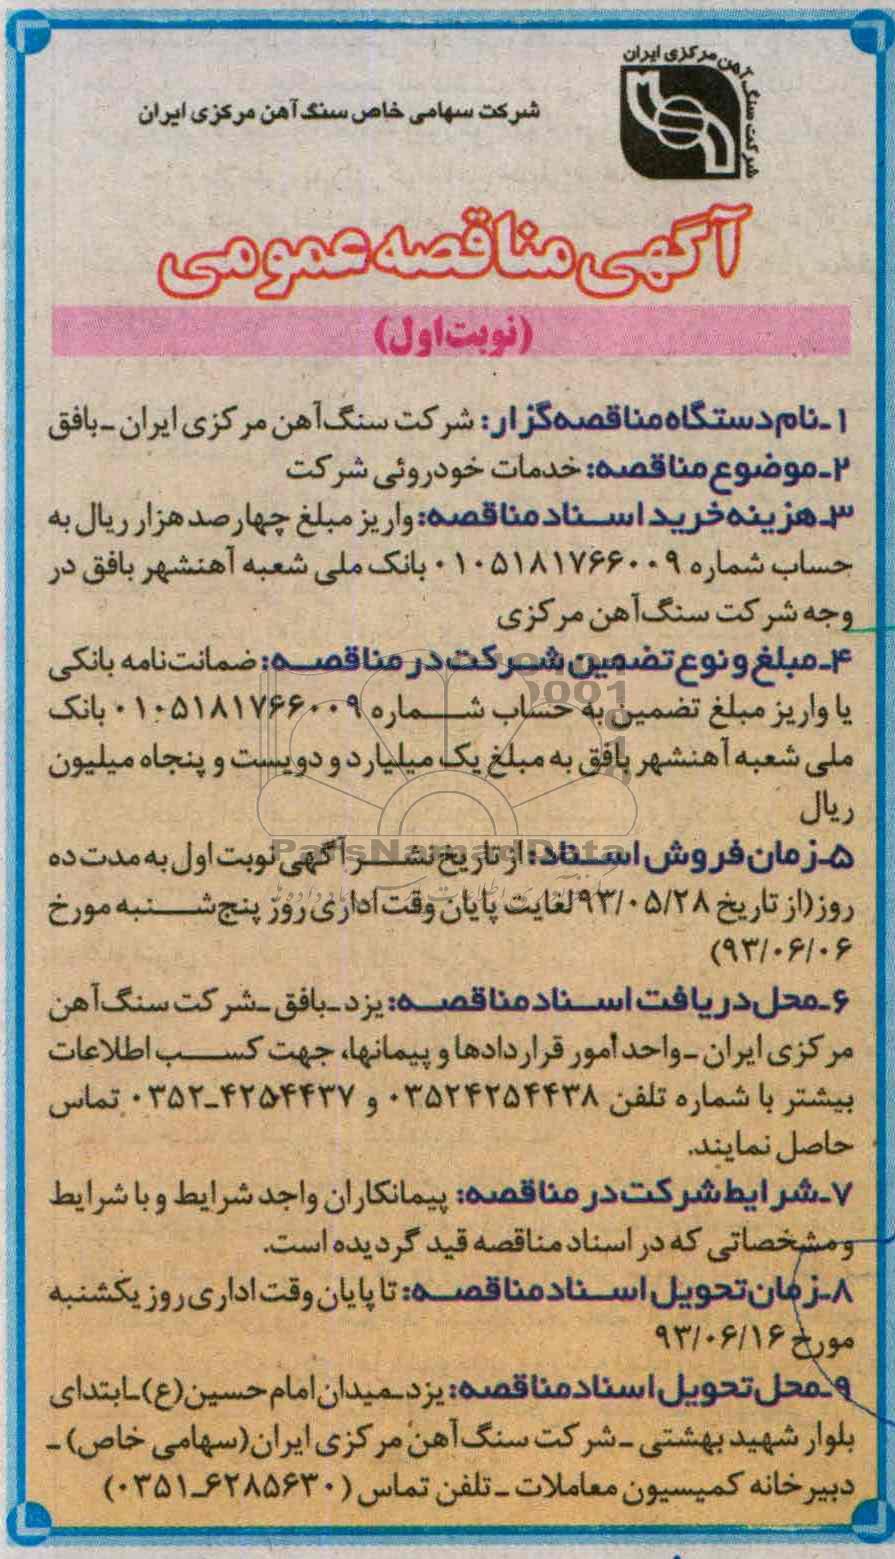 شرکت سنگ آهن مرکزی ایران
شرکت سهامی خاص سنگ آهن مرکزی ایران
آگهی مناقصه عمومی
(نوبت اول)
۱ـ نام دستگاه مناقصه‌گزار: شرکت سنگ‌آهن مرکزی ایران ـ بافق
۲ـ موضوع مناقصه: خدمات خودروئی شرکت
۳ـ هزینه خرید اسناد مناقصه: واریز مبلغ چهارصد هزار ریال به
حساب شماره ۰۱۰۵۱۸۱۷۶۶۰۰۹ بانک ملی شعبه آهنشهر بافق در
وجه شرکت سنگ‌آهن مرکزی
۴ـ مبلغ و نوع تضمین شرکت در مناقصه: ضمانت‌نامه بانکی
یا واریز مبلغ تضمین به حساب شماره ۰۱۰۵۱۸۱۷۶۶۰۰۹ بانک
ملی شعبه آهنشهر بافق به مبلغ یک میلیارد و دویست و پنجاه میلیون
ریال
ParsNamadData
۵ـ زمان فروش اسناد: از تاریخ نشر آگهی نوبت اول به مدت ده
روز (از تاریخ ۹۳/۰۵/۲۸ لغایت پایان وقت اداری روز پنج‌شنبه مورخ
۹۳/۰۶/۰۶)
۶ـ محل دریافت اسناد مناقصه: یزد ـ بافق ـ شرکت سنگ‌آهن
مرکزی ایران ـ واحد امور قراردادها و پیمانها، جهت کسب اطلاعات
بیشتر با شماره تلفن ۰۳۵۲۴۲۵۴۴۳۸ و ۴۲۵۴۴۳۷ـ۰۳۵۲ تماس
حاصل نمایند.
۷ـ شرایط شرکت در مناقصه: پیمانکاران واجد شرایط و با شرایط
و مشخصاتی که در اسناد مناقصه قید گردیده است.
۸ـ زمان تحویل اسناد مناقصه: تا پایان وقت اداری روز یکشنبه
مورخ ۹۳/۰۶/۱۶
۹ـ محل تحویل اسناد مناقصه: یزد ـ میدان امام حسین(ع) ـ ابتدای
بلوار شهید بهشتی ـ شرکت سنگ‌آهن مرکزی ایران (سهامی خاص) ـ
دبیرخانه کمیسیون معاملات ـ تلفن تماس (۶۲۸۵۶۳۰ـ۰۳۵۱)